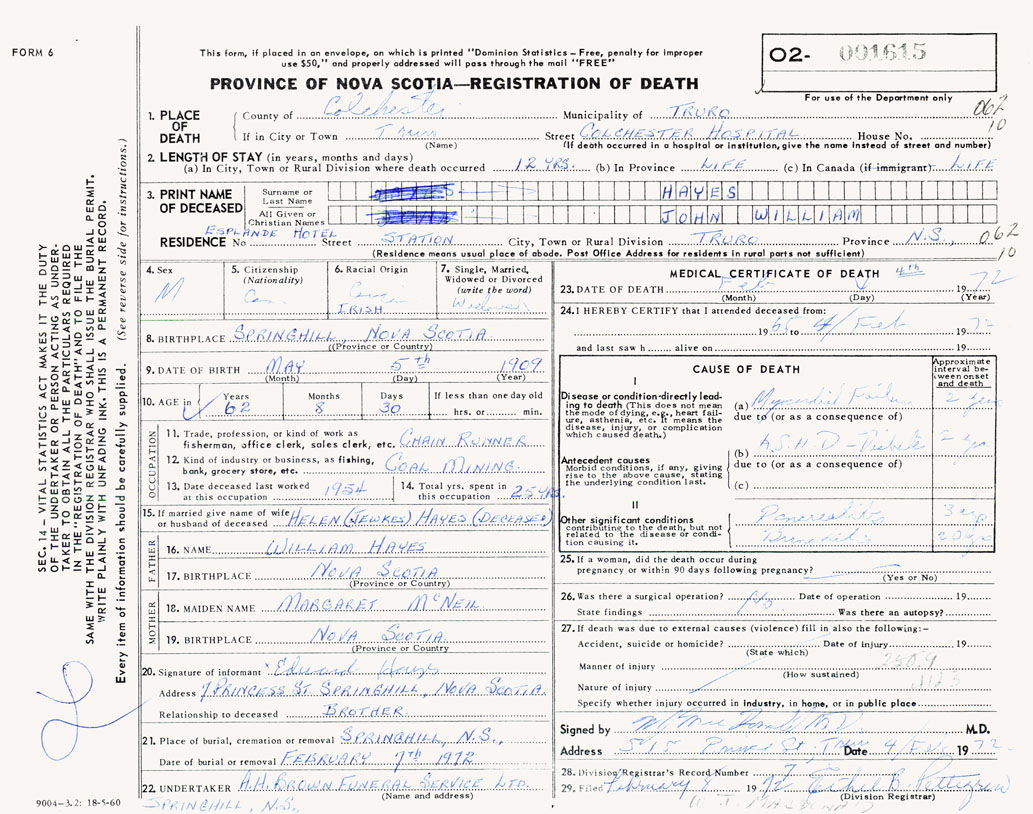 FORM 6
This form, if placed in an envelope, on which is printed "Dominion Statistics – Free, penalty for improper
use $50," and properly addressed will pass through the mail "FREE"
O2- 001615
For use of the Department only
PROVINCE OF NOVA SCOTIA—REGISTRATION OF DEATH
062
10
1. PLACE OF DEATH
County of Colchester Municipality of TRURO
If in City or Town Truro Street COLCHESTER HOSPITAL House No.
(Name) (If death occurred in a hospital or institution, give the name instead of street and number)
2. LENGTH OF STAY (in years, months and days)
(a) In City, Town or Rural Division where death occurred 12 YRS. (b) In Province LIFE (c) In Canada (if immigrant) LIFE
3. PRINT NAME OF DECEASED
Surname or Last Name HAYES
All Given or Christian Names JOHN WILLIAM
ESPLANDE HOTEL
RESIDENCE No Street STATION City, Town or Rural Division TRURO Province N.S., 062
10
(Residence means usual place of abode. Post Office Address for residents in rural parts not sufficient)
4. Sex
M
5. Citizenship
(Nationality)
Can
6. Racial Origin
IRISH
7. Single, Married,
Widowed or Divorced
(write the word)
Widower
8. BIRTHPLACE SPRINGHILL, NOVA SCOTIA
(Province or Country)
9. DATE OF BIRTH MAY 5th 1909
(Month) (Day) (Year)
10. AGE in Years Months Days If less than one day old
62 8 30 hrs. or min.
OCCUPATION
11. Trade, profession, or kind of work as
fisherman, office clerk, sales clerk, etc. CHAIN RUNNER
12. Kind of industry or business, as fishing,
bank, grocery store, etc. COAL MINING.
13. Date deceased last worked
at this occupation 1954
14. Total yrs. spent in
this occupation 25 YRS.
15. If married give name of wife
or husband of deceased HELEN (JEWKES) HAYES (DECEASED)
FATHER
16. NAME WILLIAM HAYES
17. BIRTHPLACE NOVA SCOTIA
(Province or Country)
MOTHER
18. MAIDEN NAME MARGARET McNEIL
19. BIRTHPLACE NOVA SCOTIA
(Province or Country
20. Signature of informant x Edward Hayes
Address 7 PRINCESS ST. SPRINGHILL, NOVA SCOTIA.
Relationship to deceased BROTHER.
21. Place of burial, cremation or removal SPRINGHILL, N.S.,
Date of burial or removal FEBRUARY 7th 1972
22. UNDERTAKER A.H. BROWN FUNERAL SERVICE LTD.
(Name and address)
SPRINGHILL, N.S.
9004–3.2: 18-5-60
MEDICAL CERTIFICATE OF DEATH 4th
23. DATE OF DEATH Feb 4 72
(Month) (Day) (Year)
24. I HEREBY CERTIFY that I attended deceased from:
1961 to 4/Feb 1972
and last saw h alive on 19
CAUSE OF DEATH
Approximate interval between onset and death
I
Disease or condition directly leading to death (This does not mean
the mode of dying, e.g., heart failure, asthenia, etc. It means the
disease, injury, or complication
which caused death.)
(a) Myocardial Failure 2 years
due to (or as a consequence of)
(b)
due to (or as a consequence of)
(c)
Antecedent causes
Morbid conditions, if any, giving
rise to the above cause, stating
the underlying condition last.
II
Other significant conditions
contributing to the death, but not
related to the disease or condition causing it.
Pancreatitis
Bronchitis
25. If a woman, did the death occur during
pregnancy or within 90 days following pregnancy?
(Yes or No)
26. Was there a surgical operation? No Date of operation 19
State findings Was there an autopsy?
27. If death was due to external causes (violence) fill in also the following:–
Accident, suicide or homicide? Date of injury 19
(State which)
Manner of injury
(How sustained)
Nature of injury
Specify whether injury occurred in industry, in home, or in public place
Signed by M.D.
Address Prince St, Truro Date 9/Feb 1972
28. Division Registrar's Record Number 7
29. Filed February 8 1972 Ethel B. Pettigrew
(Division Registrar)
SEC. 14 – VITAL STATISTICS ACT MAKES IT THE DUTY
OF THE UNDERTAKER OR PERSON ACTING AS UNDER-
TAKER TO OBTAIN ALL THE PARTICULARS REQUIRED
IN THE "REGISTRATION OF DEATH" AND TO FILE THE
SAME WITH THE DIVISION REGISTRAR WHO SHALL ISSUE THE BURIAL PERMIT.
WRITE PLAINLY WITH UNFADING INK. THIS IS A PERMANENT RECORD.
Every item of information should be carefully supplied. (See reverse side for instructions.)